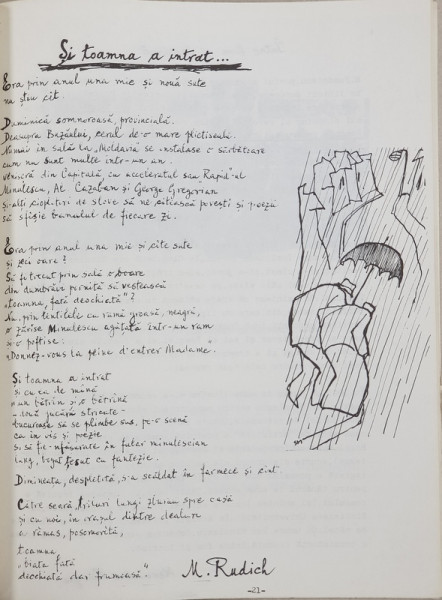 Și toamna a intrat...
Era prin anul una mie și nouă sute
nu știu cît.
Duminică somnoroasă, provincială.
Deasupra Buzăului, cerul de-o mare plictiseală.
Numai în sala la „Moldavia se instalase o sărbătoare
cum nu sunt multe într-un an.
veniseră din Capitală cu acceleratul sau Rapid"-ul
Minulescu, Al. Cazaban și George Gregorian
și-alți cioplitori de slove să ne citească povești și poezii
să sfîșie banalul de fiecare zi.
Era prin anul una mie și cîte sute
și zeci oare?
Să fi trecut prin sală o boare
din dumbrăvi pornită să vestească
„toamna, fată deochiată"?
Nu, prin lentilele cu ramă groasă, neagră,
o zărise Minulescu agățată într-un ram
și-o poftise:
„Donnez-vous la peine d'entrer Madame".
Și toamna a intrat
și cu ea de mînă
un bătrîn și o bătrînă
- două jucării stricate -
bucuroase să se plimbe sus, pe-o scenă
ca în vis și poezie
și să fie-nfășurate în fular minulescian
lung, bogat țesut cu fantezie.
Dimineața, despletită, s-a scăldat în farmece și cînt.
Către seară, triluri lungi zburau spre casă
și cu noi, în orașul dintre dealuri
a rămas, posomorită,
toamna
„biata fată
deochiată dar frumoasă".
M. Rudich
-21-